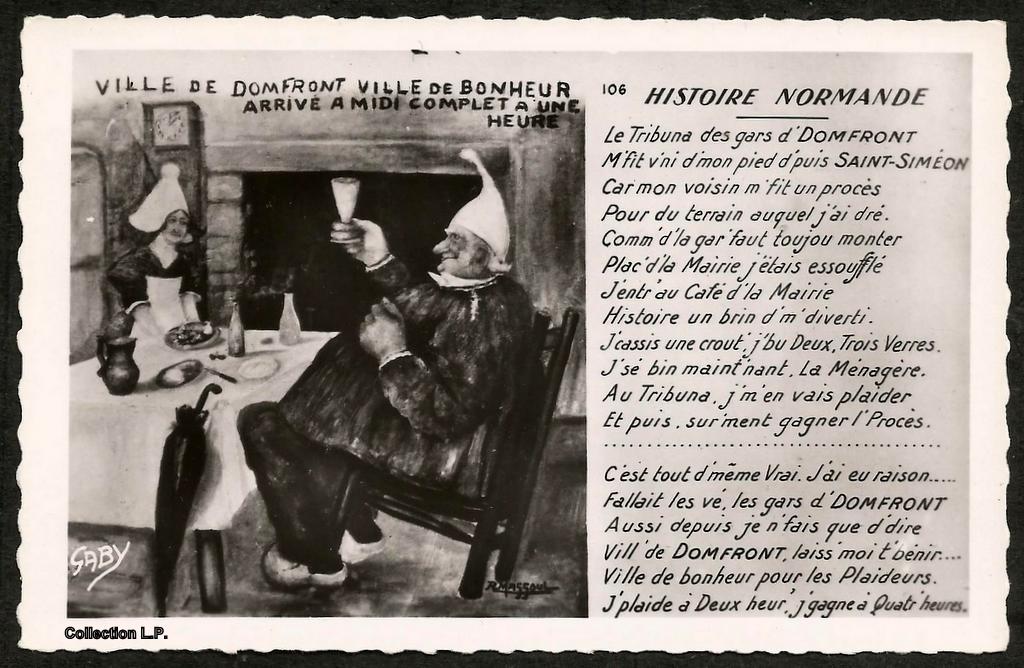 VILLE DE DOMFRONT VILLE DE BONHEUR
ARRIVÉ A MIDI COMPLET A UNE
HEURE
GABY
R.MASSOUL
Collection L.P.
106 HISTOIRE NORMANDE
Le Tribuna des gars d'DOMFRONT
M'fit v'ni d'mon pied d'puis SAINT-SIMÉON
Car mon voisin m'fit un procès
Pour du terrain auquel j'ai dré.
Comm' d'la gar' faut toujou monter
Plac' d'la Mairie j'étais essoufflé
J'entr' au Café d'la Mairie
Histoire un brin d'm'diverti.
J'cassis une crout', j'bu Deux, Trois Verres.
J'sé bin maint'nant, La Ménagère.
Au Tribuna, j'm'en vais plaider
Et puis, sur'ment gagner l'Procès.
C'est tout d'même Vrai. J'ai eu raison.....
Fallait les vé, les gars d'DOMFRONT
Aussi depuis je n'fais que d'dire
Vill' de DOMFRONT, laiss' moi t'bénir....
Ville de bonheur pour les Plaideurs.
J'plaide à Deux heur', j'gagne à Quatr' heures.